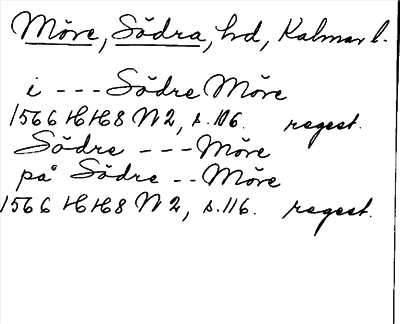 Möre, Södra, hd, Kalmar l.
i - - - Södre Möre
1566 HH8 N 2, s. 106. regest.
Södre - - - Möre
på Södre - - Möre
1566 HH8 N 2, s. 116. regest.